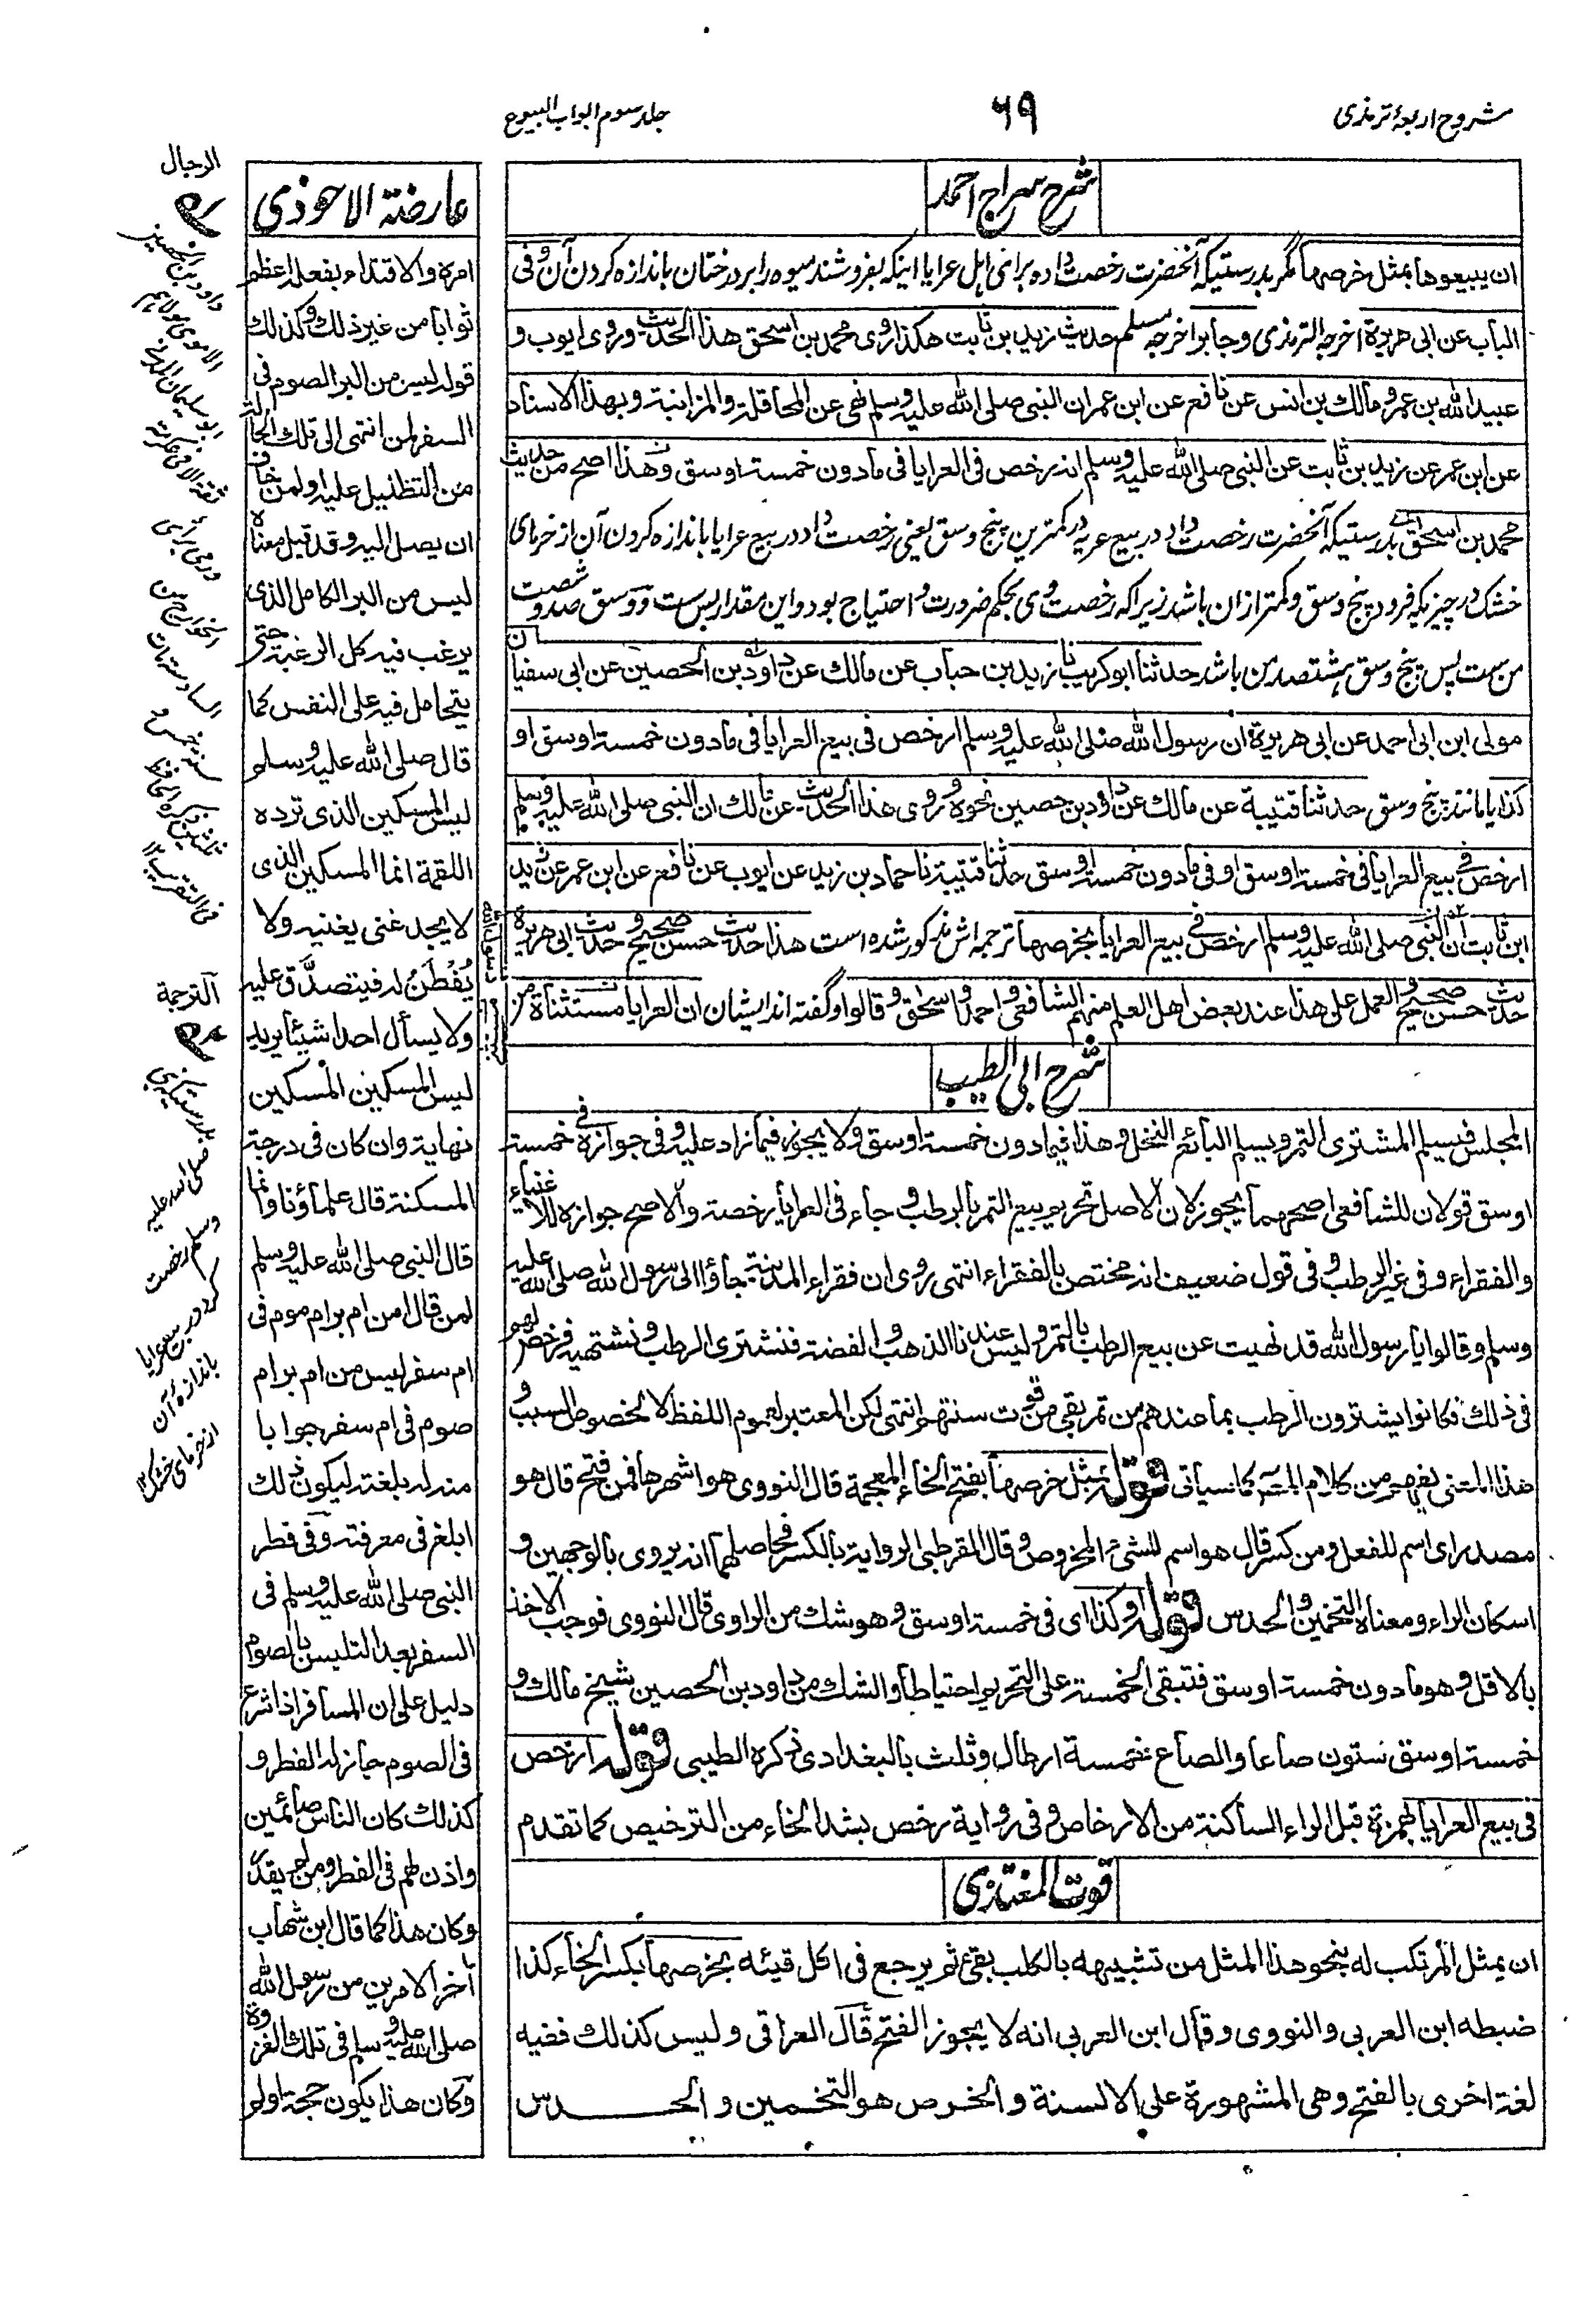 شروح اربعهٔ ترمذی
۶۹
جلد سوم ابواب البیوع
شرح سراج احمد
ان یبیعوها بمثل خرصها مگر بدرستیکه آنحضرت رخصت داده برای اهل عرایا اینکه بفروشند میوه را بر درختان باندازه کردن آن و فی
الباب عن ابی هریرة اخرجه الترمذی و جابر اخرجه مسلم حدیث زید بن ثابت هکذا روی محمد بن اسحق هذا الحدیث و روی ایوب و
عبید الله بن عمر و مالک بن انس عن نافع عن ابن عمر ان النبی صلی الله علیه وسلم نهی عن المحاقلة والمزابنة و بهذا الاسناد
عن ابن عمر عن زید بن ثابت عن النبی صلی الله علیه وسلم انه رخص فی العرایا فی ما دون خمسة اوسق و هذا اصح من حدیث
محمد بن اسحق بدرستیکه آنحضرت رخصت داد در بیع عریه در کمترین پنج وسق یعنی رخصت داد در بیع عرایا باندازه کردن آن از خرمای
خشک در چیزیکه فرود پنج وسق و کمتر ازان باشد زیراکه رخصت وی بحکم ضرورت و احتیاج بود و این مقدار بس ست و وسق صد و شصت
من ست پس پنج وسق هشتصد من باشد حدثنا ابو کریب نا زید بن حباب عن مالک عن داود بن الحصین عن ابی سفیان
مولی ابن ابی احمد عن ابی هریرة ان رسول الله صلی الله علیه وسلم ارخص فی بیع العرایا فی ما دون خمسة اوسق او
کذا یا مانند پنج وسق حدثنا قتیبة عن مالک عن داود بن حصین نحوه و روی هذا الحدیث عن مالک ان النبی صلی الله علیه وسلم
ارخص فی بیع العرایا فی خمسة اوسق او فی ما دون خمسة اوسق حدثنا قتیبة نا حماد بن زید عن ایوب عن نافع عن ابن عمر عن زید
ابن ثابت ان النبی صلی الله علیه وسلم ارخص فی بیع العرایا بخرصها ترجمه اش مذکور شده است هذا حدیث حسن صحیح و حدیث ابی هریرة
حدیث حسن صحیح و العمل علی هذا عند بعض اهل العلم منهم الشافعی و احمد و اسحق و قالوا و گفته اند ایشان ان العرایا مستثناة من
شرح ابی الطیب
المجلس فیسلم المشتری التمر ویسلم البائع النخل و هذا فیما دون خمسة اوسق ولا یجوز فیما زاد علیه و فی جوازه فی خمسة
اوسق قولان للشافعی اصحهما لا یجوز لان الاصل تحریم بیع التمر بالرطب و جاء فی العرایا رخصة والاصح جوازه للاغنیاء
والفقراء و فی غیر الرطب و فی قول ضعیف انه مختص بالفقراء انتهی روی ان فقراء المدینة جاؤا الی رسول الله صلی الله علیه
وسلم و قالوا یا رسول الله قد نهیت عن بیع الرطب بالتمر و لیس عندنا الذهب و الفضة فنشتری الرطب و نشتهیه فرخص لهم
فی ذلک فکانوا یشترون الرطب بما عندهم من تمر بقی من قوت سنتهم انتهی لکن المعتبر لعموم اللفظ لا لخصوص السبب و
هذا المعنی یفهم من کلام المص کما سیأتی قوله بمثل خرصها بفتح الخاء المعجمة قال النووی هو اشهرها فمن فتح قال هو
مصدر ای اسم للفعل و من کسر قال هو اسم للشئ المخروص و قال القرطبی الروایة بالکسر فحاصلهما انه یروی بالوجهین و
اسکان الراء و معناه التخمین و الحدس قوله او کذا ای فی خمسة اوسق و هو شک من الراوی قال النووی فوجب الاخذ
بالاقل و هو ما دون خمسة اوسق فتبقی الخمسة علی التحریم احتیاطا والشک من داود بن الحصین شیخ مالک و
خمسة اوسق ستون صاعا والصاع خمسة ارطال و ثلث بالبغدادی ذکره الطیبی قوله ارخص
فی بیع العرایا بهمزة قبل الراء الساکنة من الارخاص و فی روایة رخص بشد الخاء من الترخیص کما تقدم
قوت المغتذی
ان یمثل المرتکب له بنحو هذا المثل من تشبیهه بالکلب یقئ ثم یرجع فی اکل قیئه بخرصها بکسر الخاء کذا
ضبطه ابن العربی و النووی و قال ابن العربی انه لا یجوز الفتح قال العراقی و لیس کذلک ففیه
لغة اخری بالفتح وهی المشهورة علی الالسنة و الخرص هو التخمین و الحدس
عارضة الاحوذی
امره والاقتداء بفعله اعظم
ثوابا من غیر ذلک و کذلک
قوله لیس من البر الصوم فی
السفر لمن انتهی الی تلک الحالة
من التظلیل علیه او لمن خاف
ان یصل الیه و قد قیل معناه
لیس من البر الکامل الذی
یرغب فیه کل الرغبة حتی
یتحامل فیه علی النفس کما
قال صلی الله علیه وسلم
لیس المسکین الذی ترده
اللقمة انما المسکین الذی
لا یجد غنی یغنیه ولا
یُفْطَنُ له فیتصدَّق علیه
ولا یسأل احدا شیئا یرید
لیس المسکین المسکین
نهایة وان کان فی درجة
المسکنة قال علماؤنا وانما
قال النبی صلی الله علیه وسلم
لمن قال امن ام برام موم فی
ام سفر لیس من ام برام
صوم فی ام سفر جوابا
منه له بلغته لیکون ذلک
ابلغ فی معرفته و فی فطر
النبی صلی الله علیه وسلم فی
السفر بعد التلبس بالصوم
دلیل علی ان المسافر اذا شرع
فی الصوم جاز له الفطر و
کذلک کان الناس صائمین
واذن لهم فی الفطر
وکان هذا کما قال ابن شهاب
آخر الامرین من رسول الله
صلی الله علیه وسلم فی تلک الغزوة
وکان هذا یکون حجة اولو
الرجال
داود بن الحصین
الاموی مولاهم
ابو سلیمان المدنی
ثقة الا فی عکرمة
ورمی برأی
الخوارج من
السادسة مات
سنة خمس و
ثلثین ذکره الحافظ
فی التقریب ۱۲
الترجمة
بدرستیکه نبی
صلی الله علیه
وسلم رخصت
کرد در بیع عرایا
باندازه آن
از خرمای خشک ۱۲